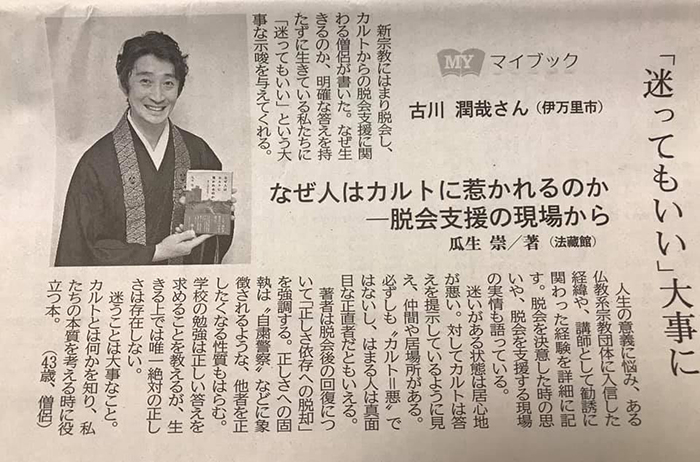 「迷ってもいい」大事に
MY マイブック
古川 潤哉さん(伊万里市)
新宗教にはまり脱会し、
カルトからの脱会支援に関
わる僧侶が書いた。なぜ生
きるのか、明確な答えを持
たずに生きている私たちに
「迷ってもいい」という大
事な示唆を与えてくれる。
なぜ人はカルトに惹かれるのか
―脱会支援の現場から
瓜生 崇/著(法藏館)
人生の意義に悩み、ある
仏教系宗教団体に入信した
経緯や、講師として勧誘に
関わった経験を詳細に記
す。脱会を決意した時の思
いや、脱会を支援する現場
の実情も語っている。
迷いがある状態は居心地
が悪い。対してカルトは答
えを提示しているように見
え、仲間や居場所がある。
必ずしも“カルト=悪”で
はないし、はまる人は真面
目な正直者だともいえる。
著者は脱会後の回復につ
いて「正しさ依存への脱却」
を強調する。正しさへの固
執は“自粛警察”などに象
徴されるような、他者を正
したくなる性質もはらむ。
学校の勉強は正しい答えを
求めることを教えるが、生
きる上では唯一絶対の正し
さは存在しない。
迷うことは大事なこと。
カルトとは何かを知り、私
たちの本質を考える時に役
立つ本。(43歳、僧侶)